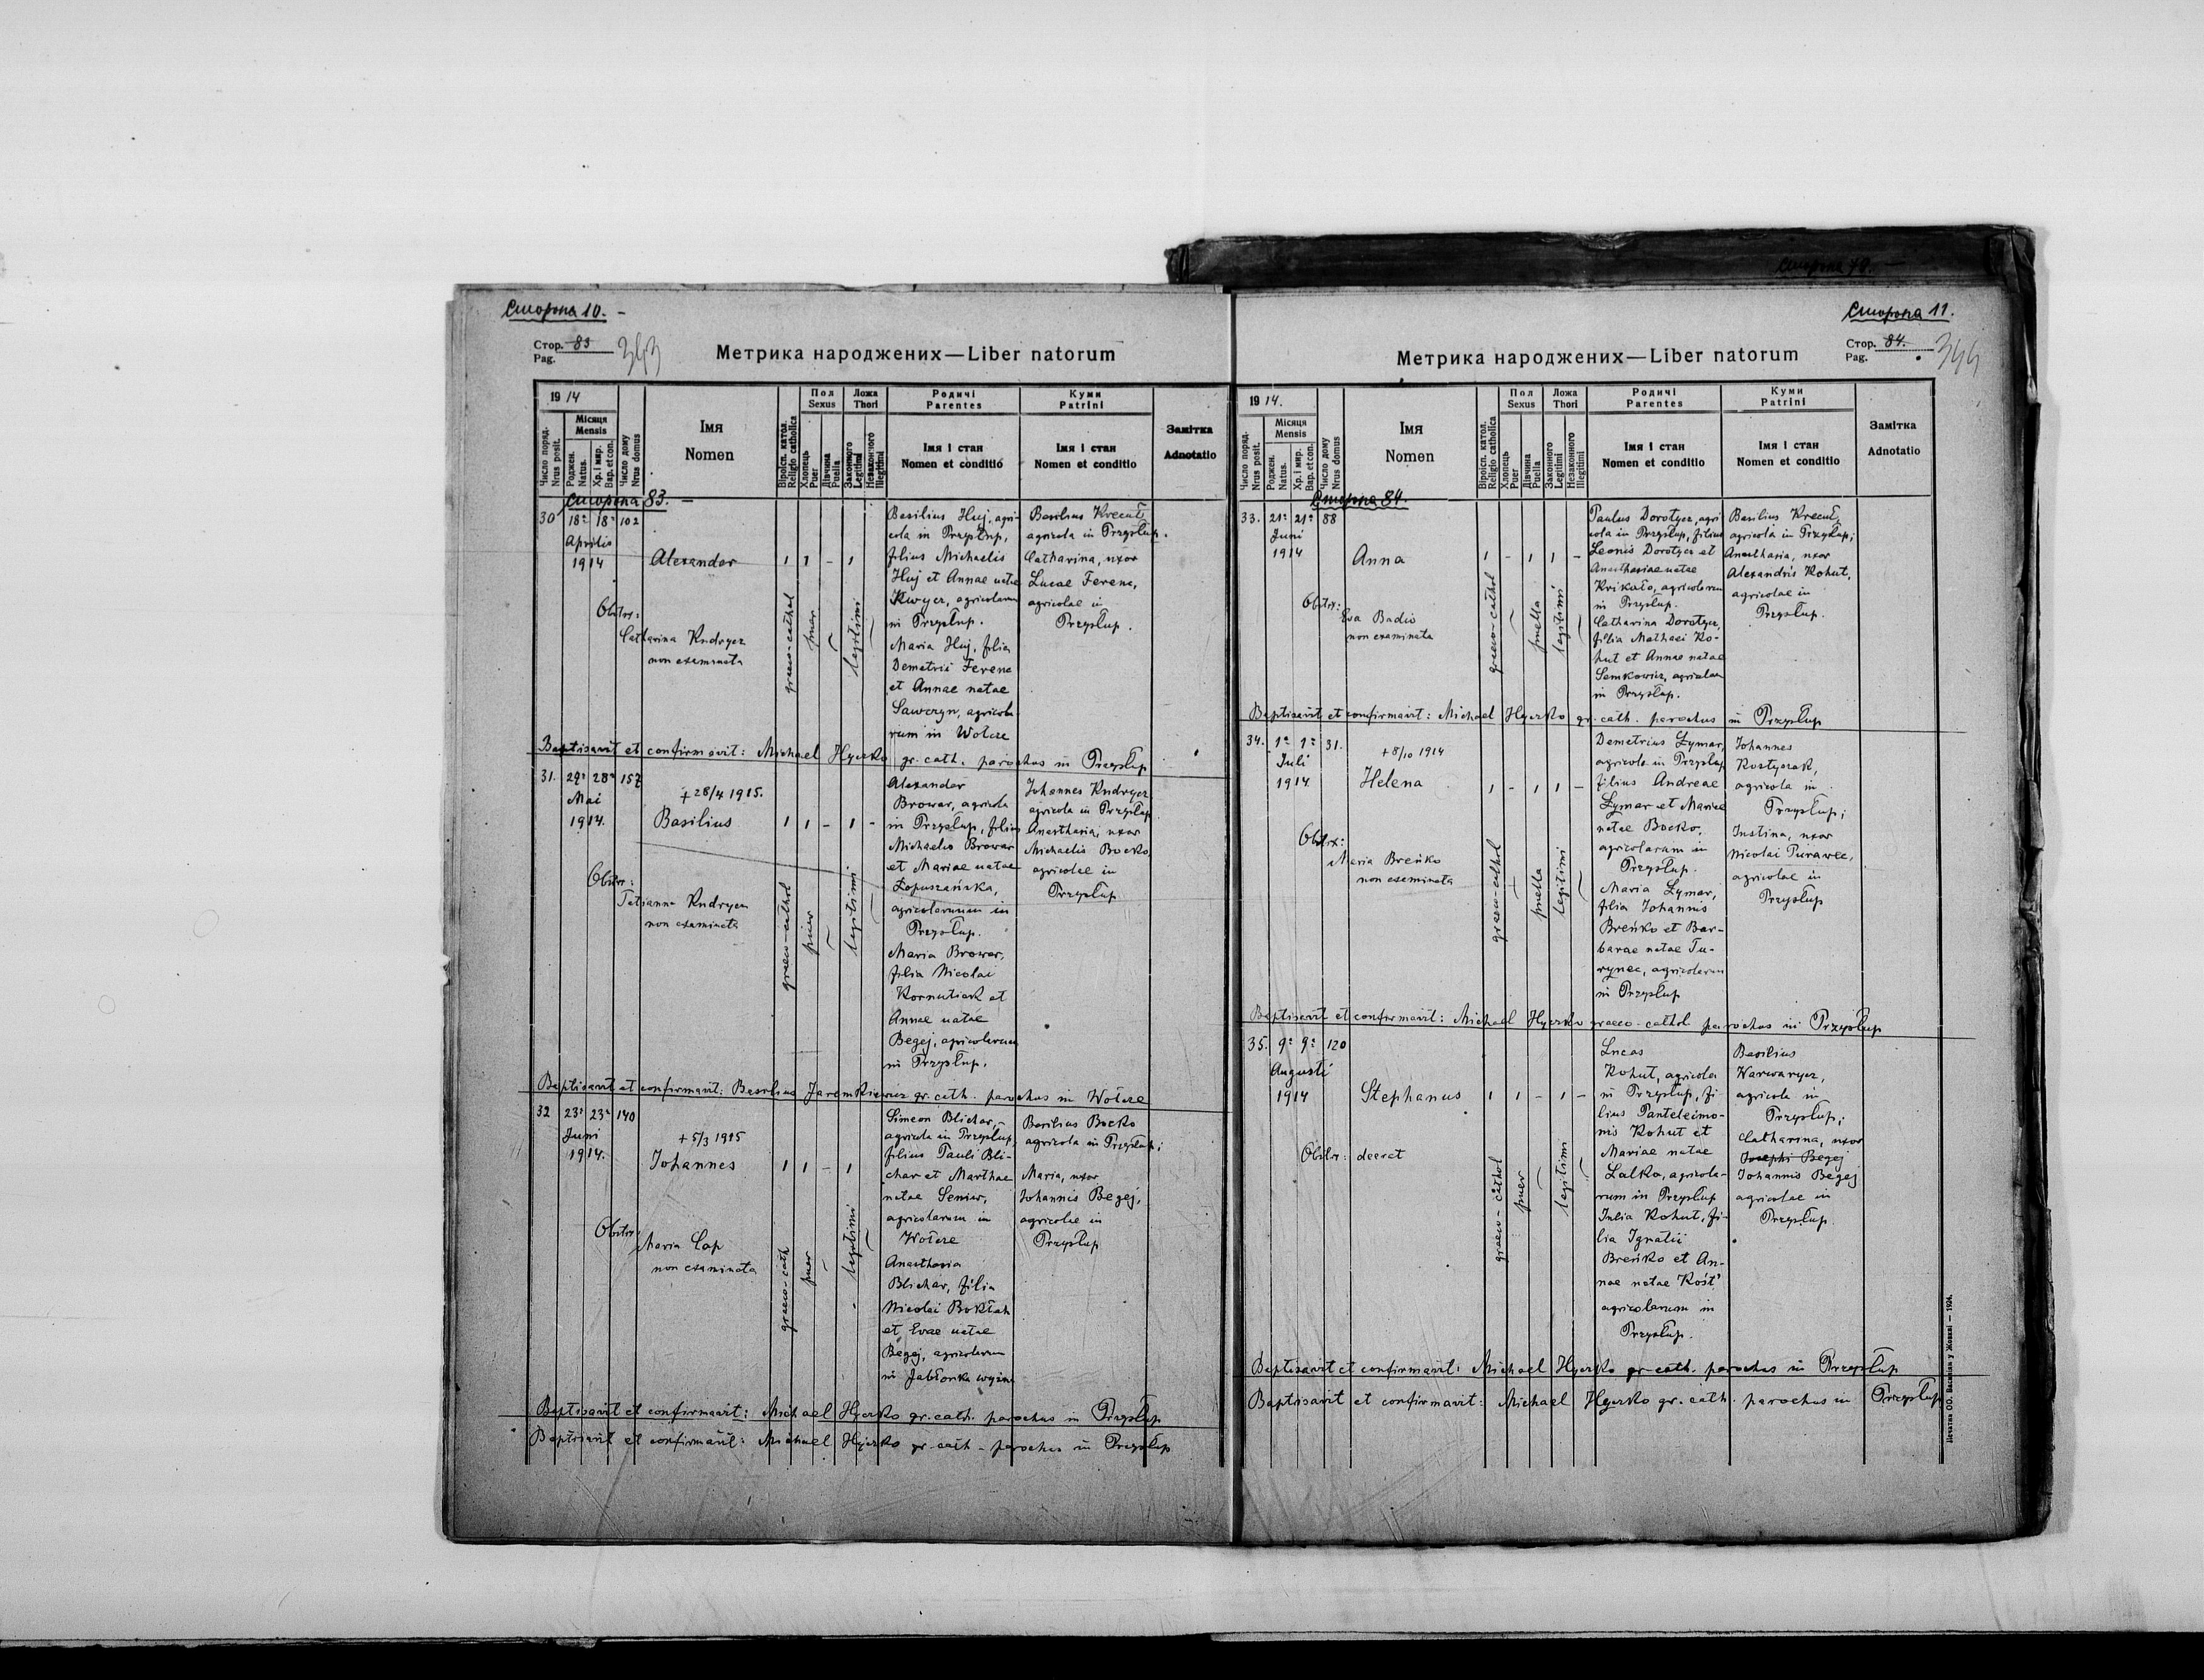 Сторона 10. -
Стор. 83
Pag.
353
Метрика народжених—Liber natorum
19 14
Число поряд.
Nrus posit.
Місяця
Mensis
Роджен.
Natus.
Хр. і мир.
Bap. et con.
Число дому
Nrus domus
Імя
Nomen
Віроісп. катол.
Religio catholica
Пол
Sexus
Хлопець
Puer
Дівчина
Puella
Ложа
Thori
Законного
Legitimi
Незаконного
Illegitimi
Родичі
Parentes
Імя і стан
Nomen et conditio
Куми
Patrini
Імя і стан
Nomen et conditio
Замітка
Adnotatio
Сторона 83. -
30 18ª 18ª 102
Aprilis
1914
Alexander
1 1 - 1
Obstrx:
Catharina Kudrycz
non examinata
graeco-cathol
puer
legitimi
Basilius Huj, agri-
cola in Przysłup,
filius Michaelis
Huj et Annae natae
Kwycz, agricolarum
in Przysłup.
Maria Huj, filia
Demetrii Ferenc
et Annae natae
Sawczyn, agricola-
rum in Wołcze
Basilius Krecuł,
agricola in Przysłup.
Catharina, uxor
Lucae Ferenc,
agricolae in
Przysłup.
Baptisavit et confirmavit: Michael Hyczko gr. cath. parochus in Przysłup
31. 27ª 28ª 157
Mai
1914.
+ 28/4 1915.
Basilius
1 1 - 1 -
Obstrx:
Tatianna Kudrycz
non examinata
graeco-cathol
puer
legitimi
Alexander
Browar, agricola
in Przysłup, filius
Michaelis Browar
et Mariae natae
Łopuszańska,
agricolarum in
Przysłup.
Maria Browar,
filia Nicolai
Kornutiak et
Annae natae
Begej, agricolarum
in Przysłup.
Johannes Kudrycz
agricola in Przysłup
Anasthasia, uxor
Michaelis Bocko,
agricolae in
Przysłup
Baptisavit et confirmavit: Basilius Jaremkiewicz gr. cath. parochus in Wołcze
32 23ª 23ª 140
Juni
1914.
+ 5/3 1915
Johannes
1 1 - 1
Obstrx:
Maria Cap
non examinata
graeco-cath
puer
legitimi
Simeon Blichar,
agricola in Przysłup,
filius Pauli Bli-
char et Marthae
natae Seniw,
agricolarum in
Wołcze
Anasthasia
Blichar, filia
Nicolai Bokłah
et Evae natae
Begej, agricolarum
in Jabłonka wyżna
Basilius Bocko
agricola in Przysłup;
Maria, uxor
Johannis Begej,
agricolae in
Przysłup
Baptisavit et confirmavit: Michael Hyczko gr. cath. parochus in Przysłup
Baptisavit et confirmavit: Michael Hyczko gr. cath - parochus in Przysłup
Сторона 78. -
Сторона 11.
Стор. 84.
Pag.
354
Метрика народжених—Liber natorum
19 14.
Число поряд.
Nrus posit.
Місяця
Mensis
Роджен.
Natus.
Хр. і мир.
Bap. et con.
Число дому
Nrus domus
Імя
Nomen
Віроісп. катол.
Religio catholica
Пол
Sexus
Хлопець
Puer
Дівчина
Puella
Ложа
Thori
Законного
Legitimi
Незаконного
Illegitimi
Родичі
Parentes
Імя і стан
Nomen et conditio
Куми
Patrini
Імя і стан
Nomen et conditio
Замітка
Adnotatio
Сторона 84.
33. 21ª 21ª 88
Juni
1914
Anna
1 - 1 1 -
Obstrx:
Eva Badio
non examinata
graeco-cathol
puella
legitimi
Paulus Dorotycz, agri-
cola in Przysłup, filius
Leonis Dorotycz et
Anasthasiae natae
Krikało, agricolarum
in Przysłup.
Catharina Dorotycz,
filia Mathaei Ko-
hut et Annae natae
Semkowicz, agricolarum
in Przysłup.
Basilius Krecuł,
agricola in Przysłup;
Anasthasia, uxor
Alexandris Kohut,
agricolae in
Przysłup.
Baptisavit et confirmavit: Michael Hyczko gr-cath. parochus in Przysłup
34. 1ª 1ª 31.
Juli
1914
+ 8/10 1914
Helena
1 - 1 1 -
Obstrx:
Maria Breńko
non examinata
graeco-cathol
puella
legitimi
Demetrius Łymar,
agricola in Przysłup
filius Andreae
Łymar et Mariae
natae Bocko,
agricolarum in
Przysłup.
Maria Łymar,
filia Johannis
Breńko et Bar-
barae natae Tu-
rynec, agricolarum
in Przysłup
Johannes
Kostyszak,
agricola in
Przysłup;
Justina, uxor
Nicolai Purawec,
agricolae in
Przysłup
Baptisavit et confirmavit: Michael Hyczko graeco-cathol parochus in Przysłup
35. 9ª 9ª 120
Augusti
1914
Stephanus
1 1 - 1 -
Obstrx: decret
graeco-cathol
puer
legitimi
Lucas
Kohut, agricola
in Przysłup, fi-
lius Panteleimo-
nis Kohut et
Mariae natae
Lalka, agricola-
rum in Przysłup
Julia Kohut, fi-
lia Ignatii
Breńko et An-
nae natae Kość
agricolarum in
Przysłup.
Basilius
Warwarycz,
agricola in
Przysłup;
Catharina, uxor
Josephi Begej
Johannis Begej
agricolae in
Przysłup.
Baptisavit et confirmavit: Michael Hyczko gr-cath. parochus in Przysłup
Baptisavit et confirmavit: Michael Hyczko gr. cath. parochus in Przysłup
Печатня ОО. Василіян у Жовкві — 1924.